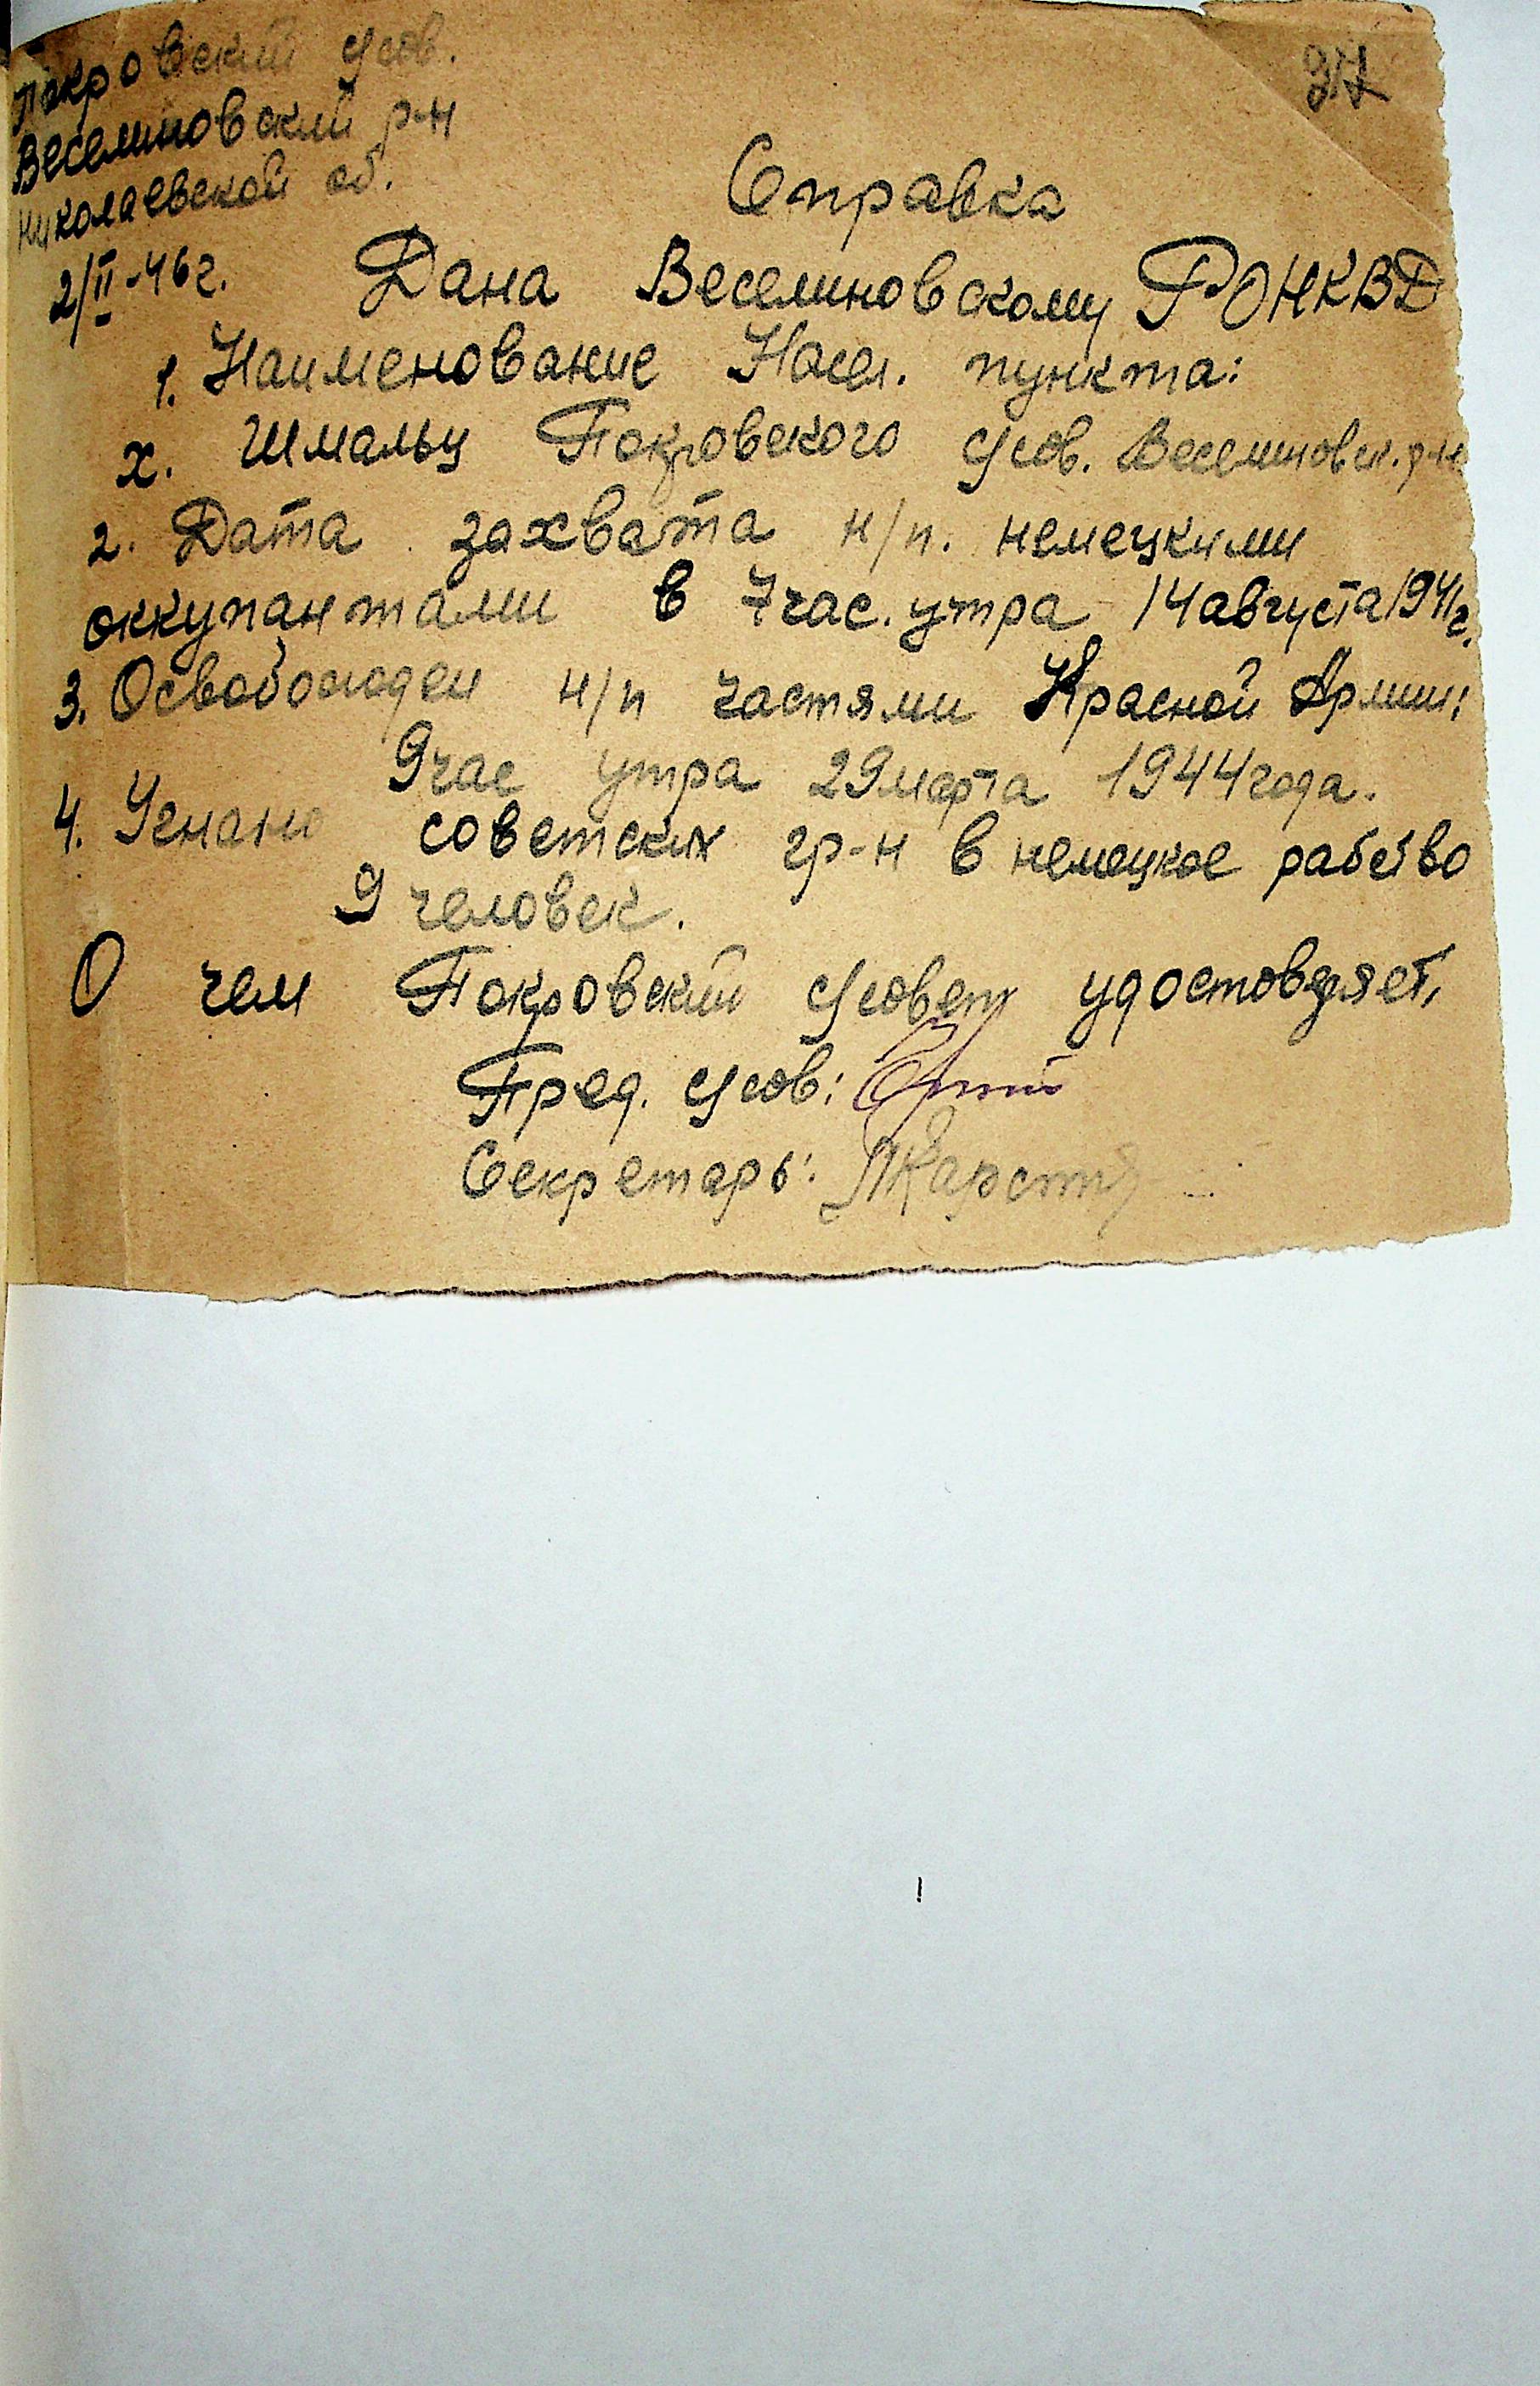 37
Покровский с/сов.
Веселиновский р-н
Николаевской об.
2/II-46 г.
Справка
Дана Веселиновскому РОНКВД
1. Наименование Насел. пункта:
х. Шмальц Покровского с/сов. Веселиновск. р-на
2. Дата захвата н/п. немецкими
оккупантами в 7 час. утра 14 августа 1941 г.
3. Освобожден н/п частями Красной Армии:
9 час утра 29 марта 1944 года.
4. Угнано советских гр-н в немецкое рабство
9 человек.
О чем Покровский с/совет удостоверяет,
Пред. с/сов:
Секретарь: